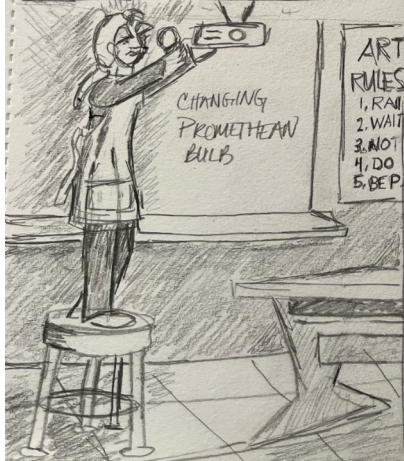 CHANGING
PROMETHEAN
BULB
ART
RULES
1, RAI
2. WAIT
3. NOT
4, DO
5, BEP